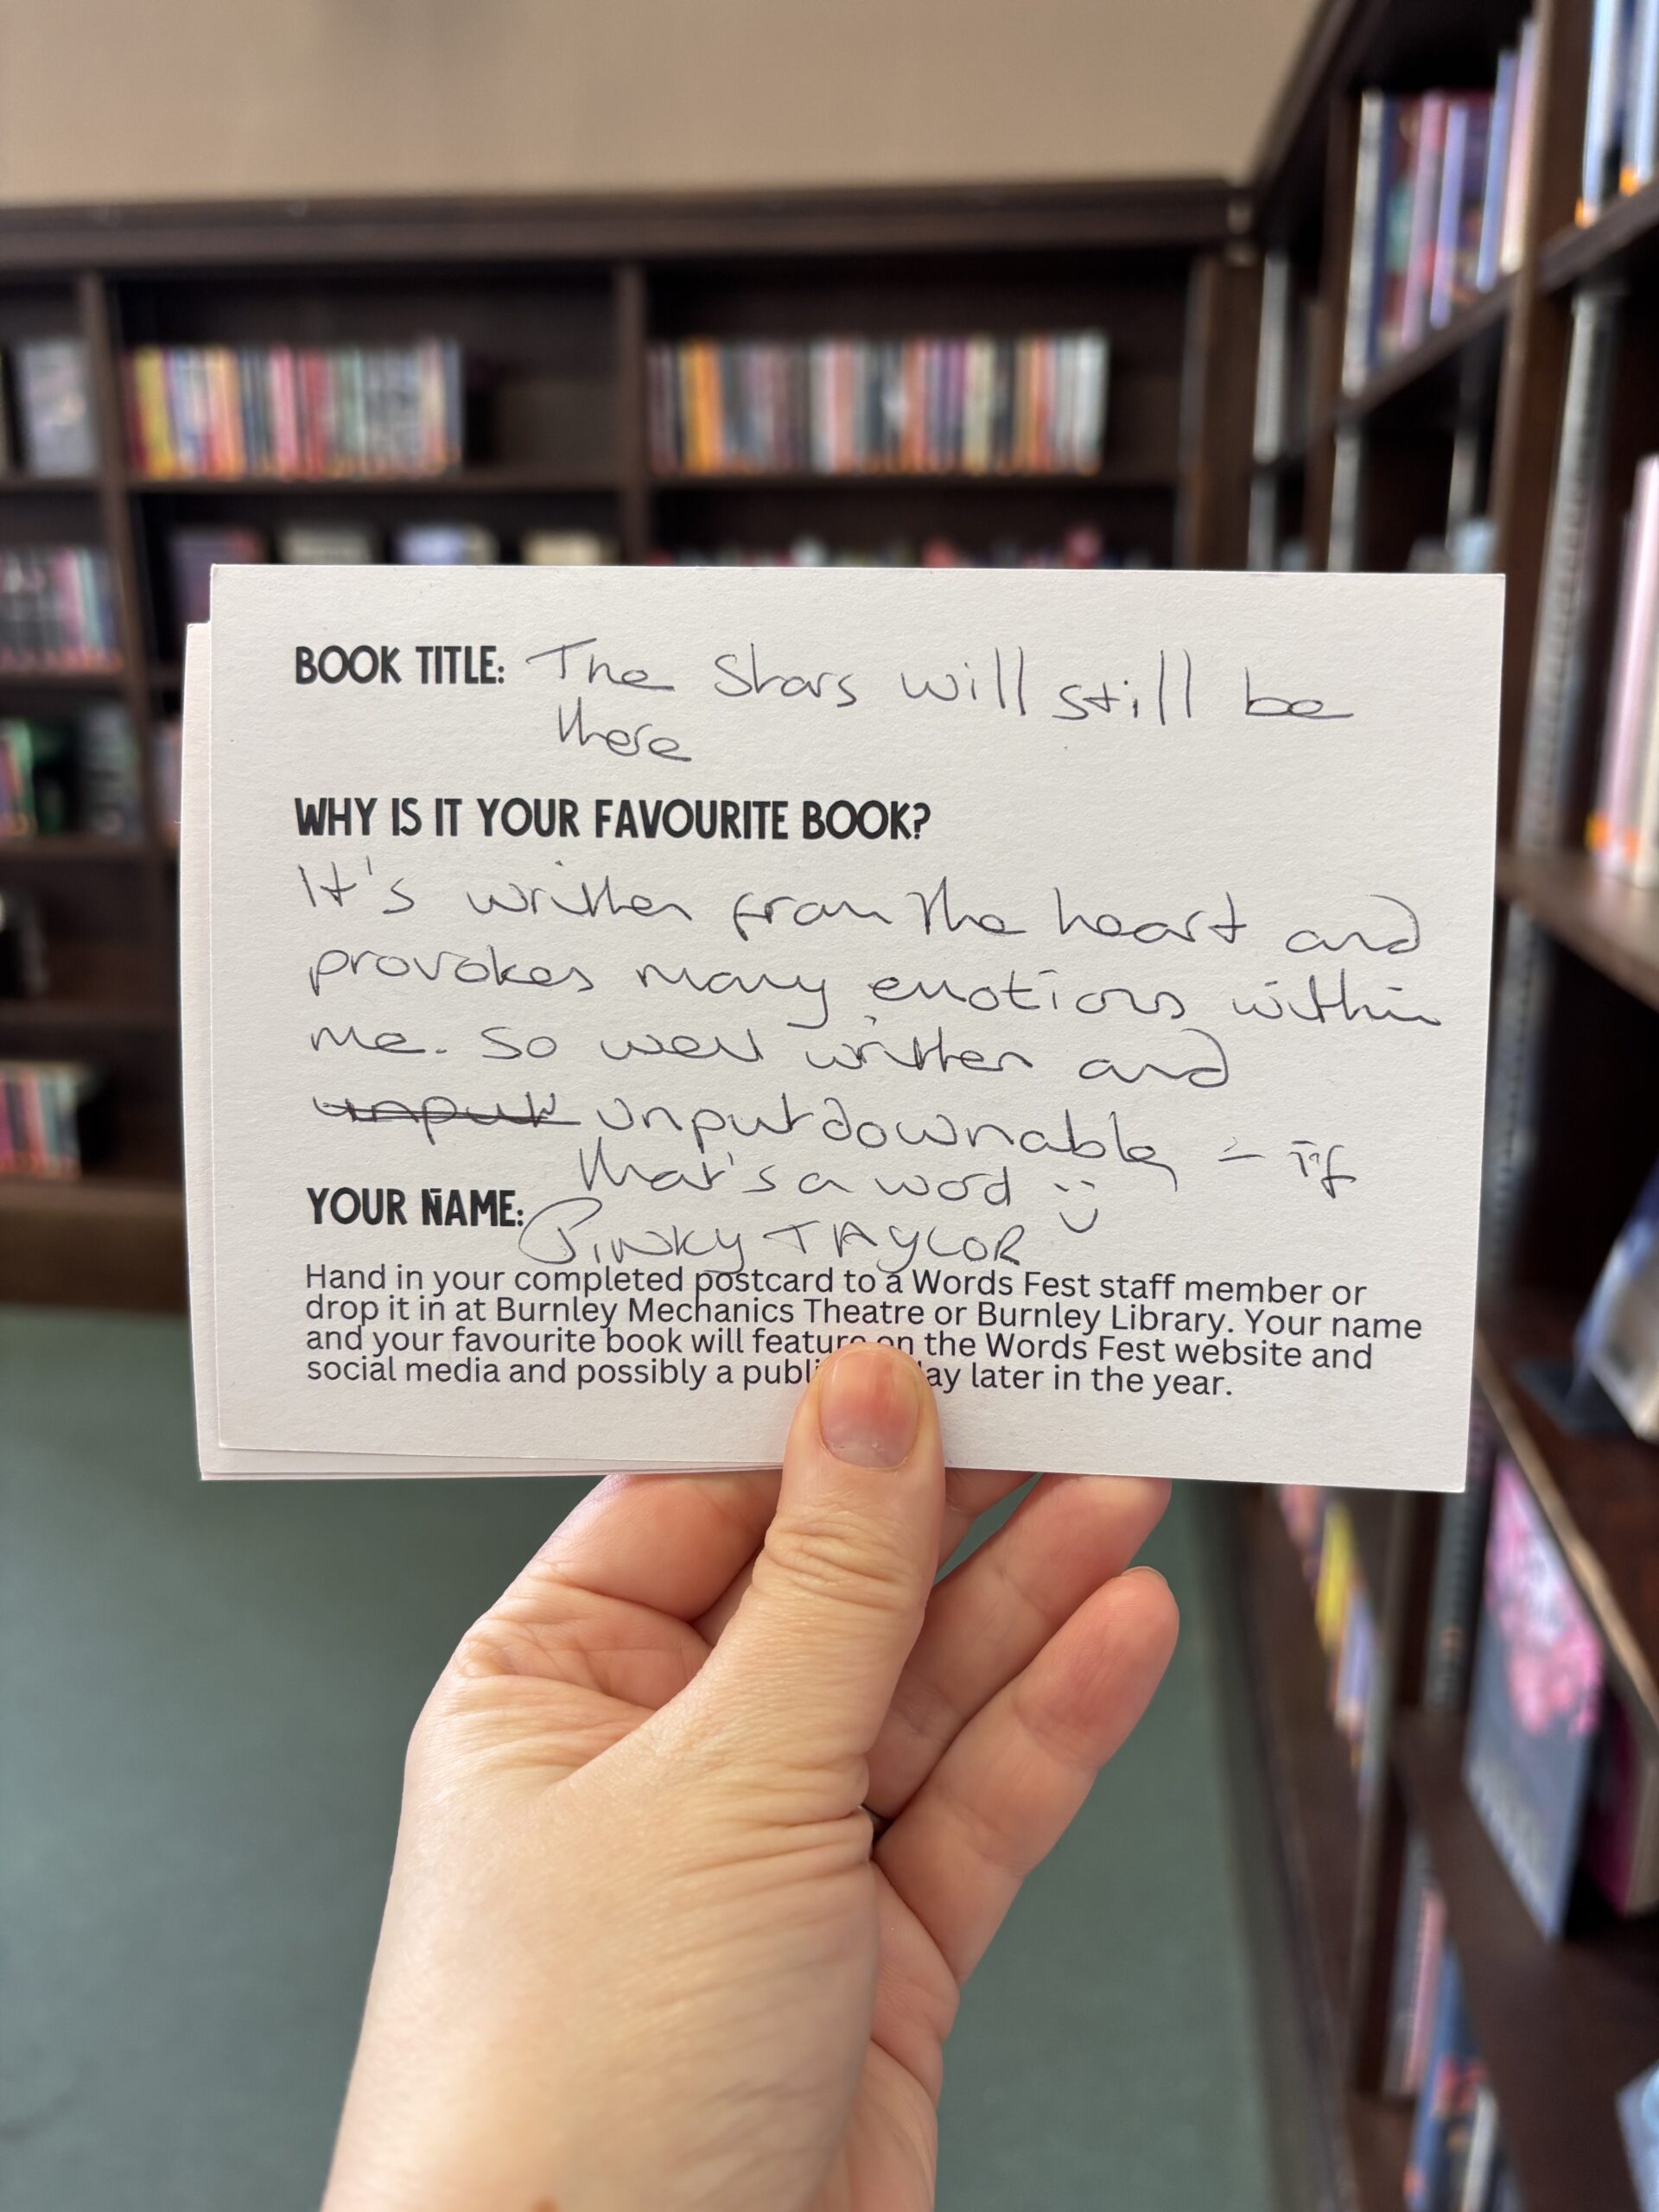 BOOK TITLE: The Stars will still be
there
WHY IS IT YOUR FAVOURITE BOOK?
It's written from the heart and
provokes many emotions within
me. So well written and
unput unputdownable - if
that's a word :)
YOUR NAME: PINKY TAYLOR
Hand in your completed postcard to a Words Fest staff member or
drop it in at Burnley Mechanics Theatre or Burnley Library. Your name
and your favourite book will feature on the Words Fest website and
social media and possibly a later in the year.